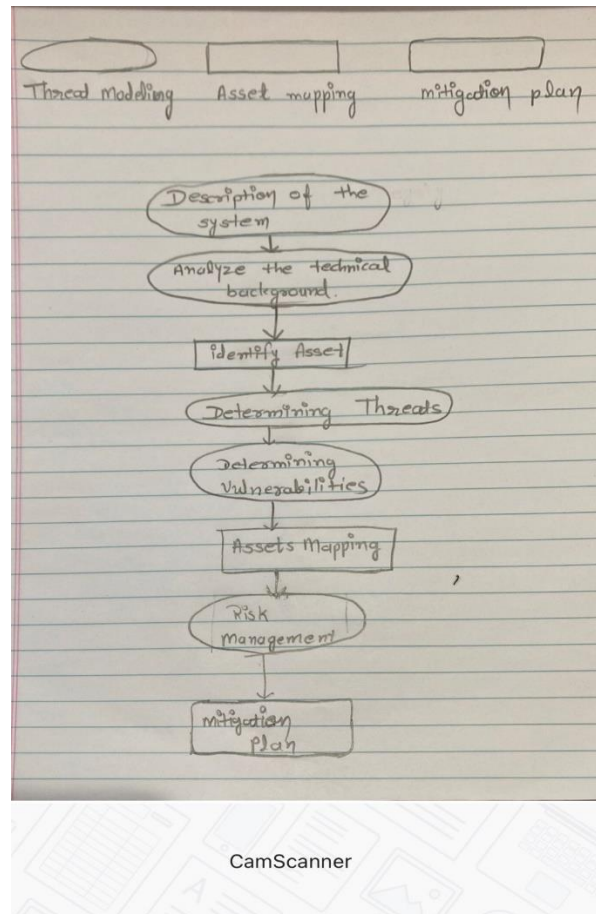 Thread Modeling
Asset mapping
mitigation plan
Description of the
system
Analyze the technical
background.
identify Asset
Determining Threads
Determining
Vulnerabilities
Assets Mapping
Risk
management
mitigation
Plan
CamScanner